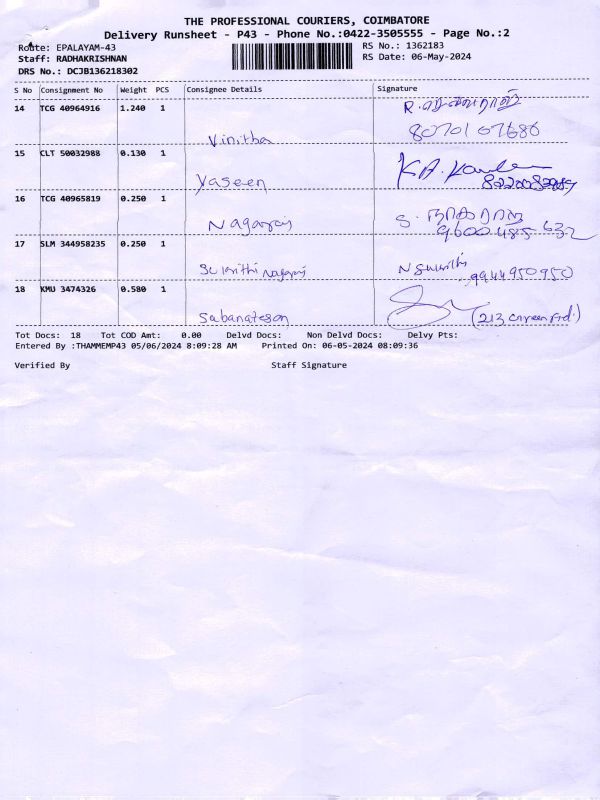 THE PROFESSIONAL COURIERS, COIMBATORE
Delivery Runsheet - P43 - Phone No.:0422-3505555 - Page No.:2
Route: EPALAYAM-43 RS No.: 1362183
Staff: RADHAKRISHNAN RS Date: 06-May-2024
DRS No.: DCJB136218302
S No Consignment No Weight PCS Consignee Details Signature
14 TCG 40964916 1.240 1
Vinitha
15 CLT 50032988 0.130 1
Yaseen
16 TCG 40965819 0.250 1 S. நாகராஜ
Nagaraj 9600485 632
17 SLM 344958235 0.250 1
Nagaraj 9944950950
18 KMU 3474326 0.580 1
Sabanateson (213
Tot Docs: 18 Tot COD Amt: 0.00 Delvd Docs: Non Delvd Docs: Delvy Pts:
Entered By :THAMMEMP43 05/06/2024 8:09:28 AM Printed On: 06-05-2024 08:09:36
Verified By Staff Signature